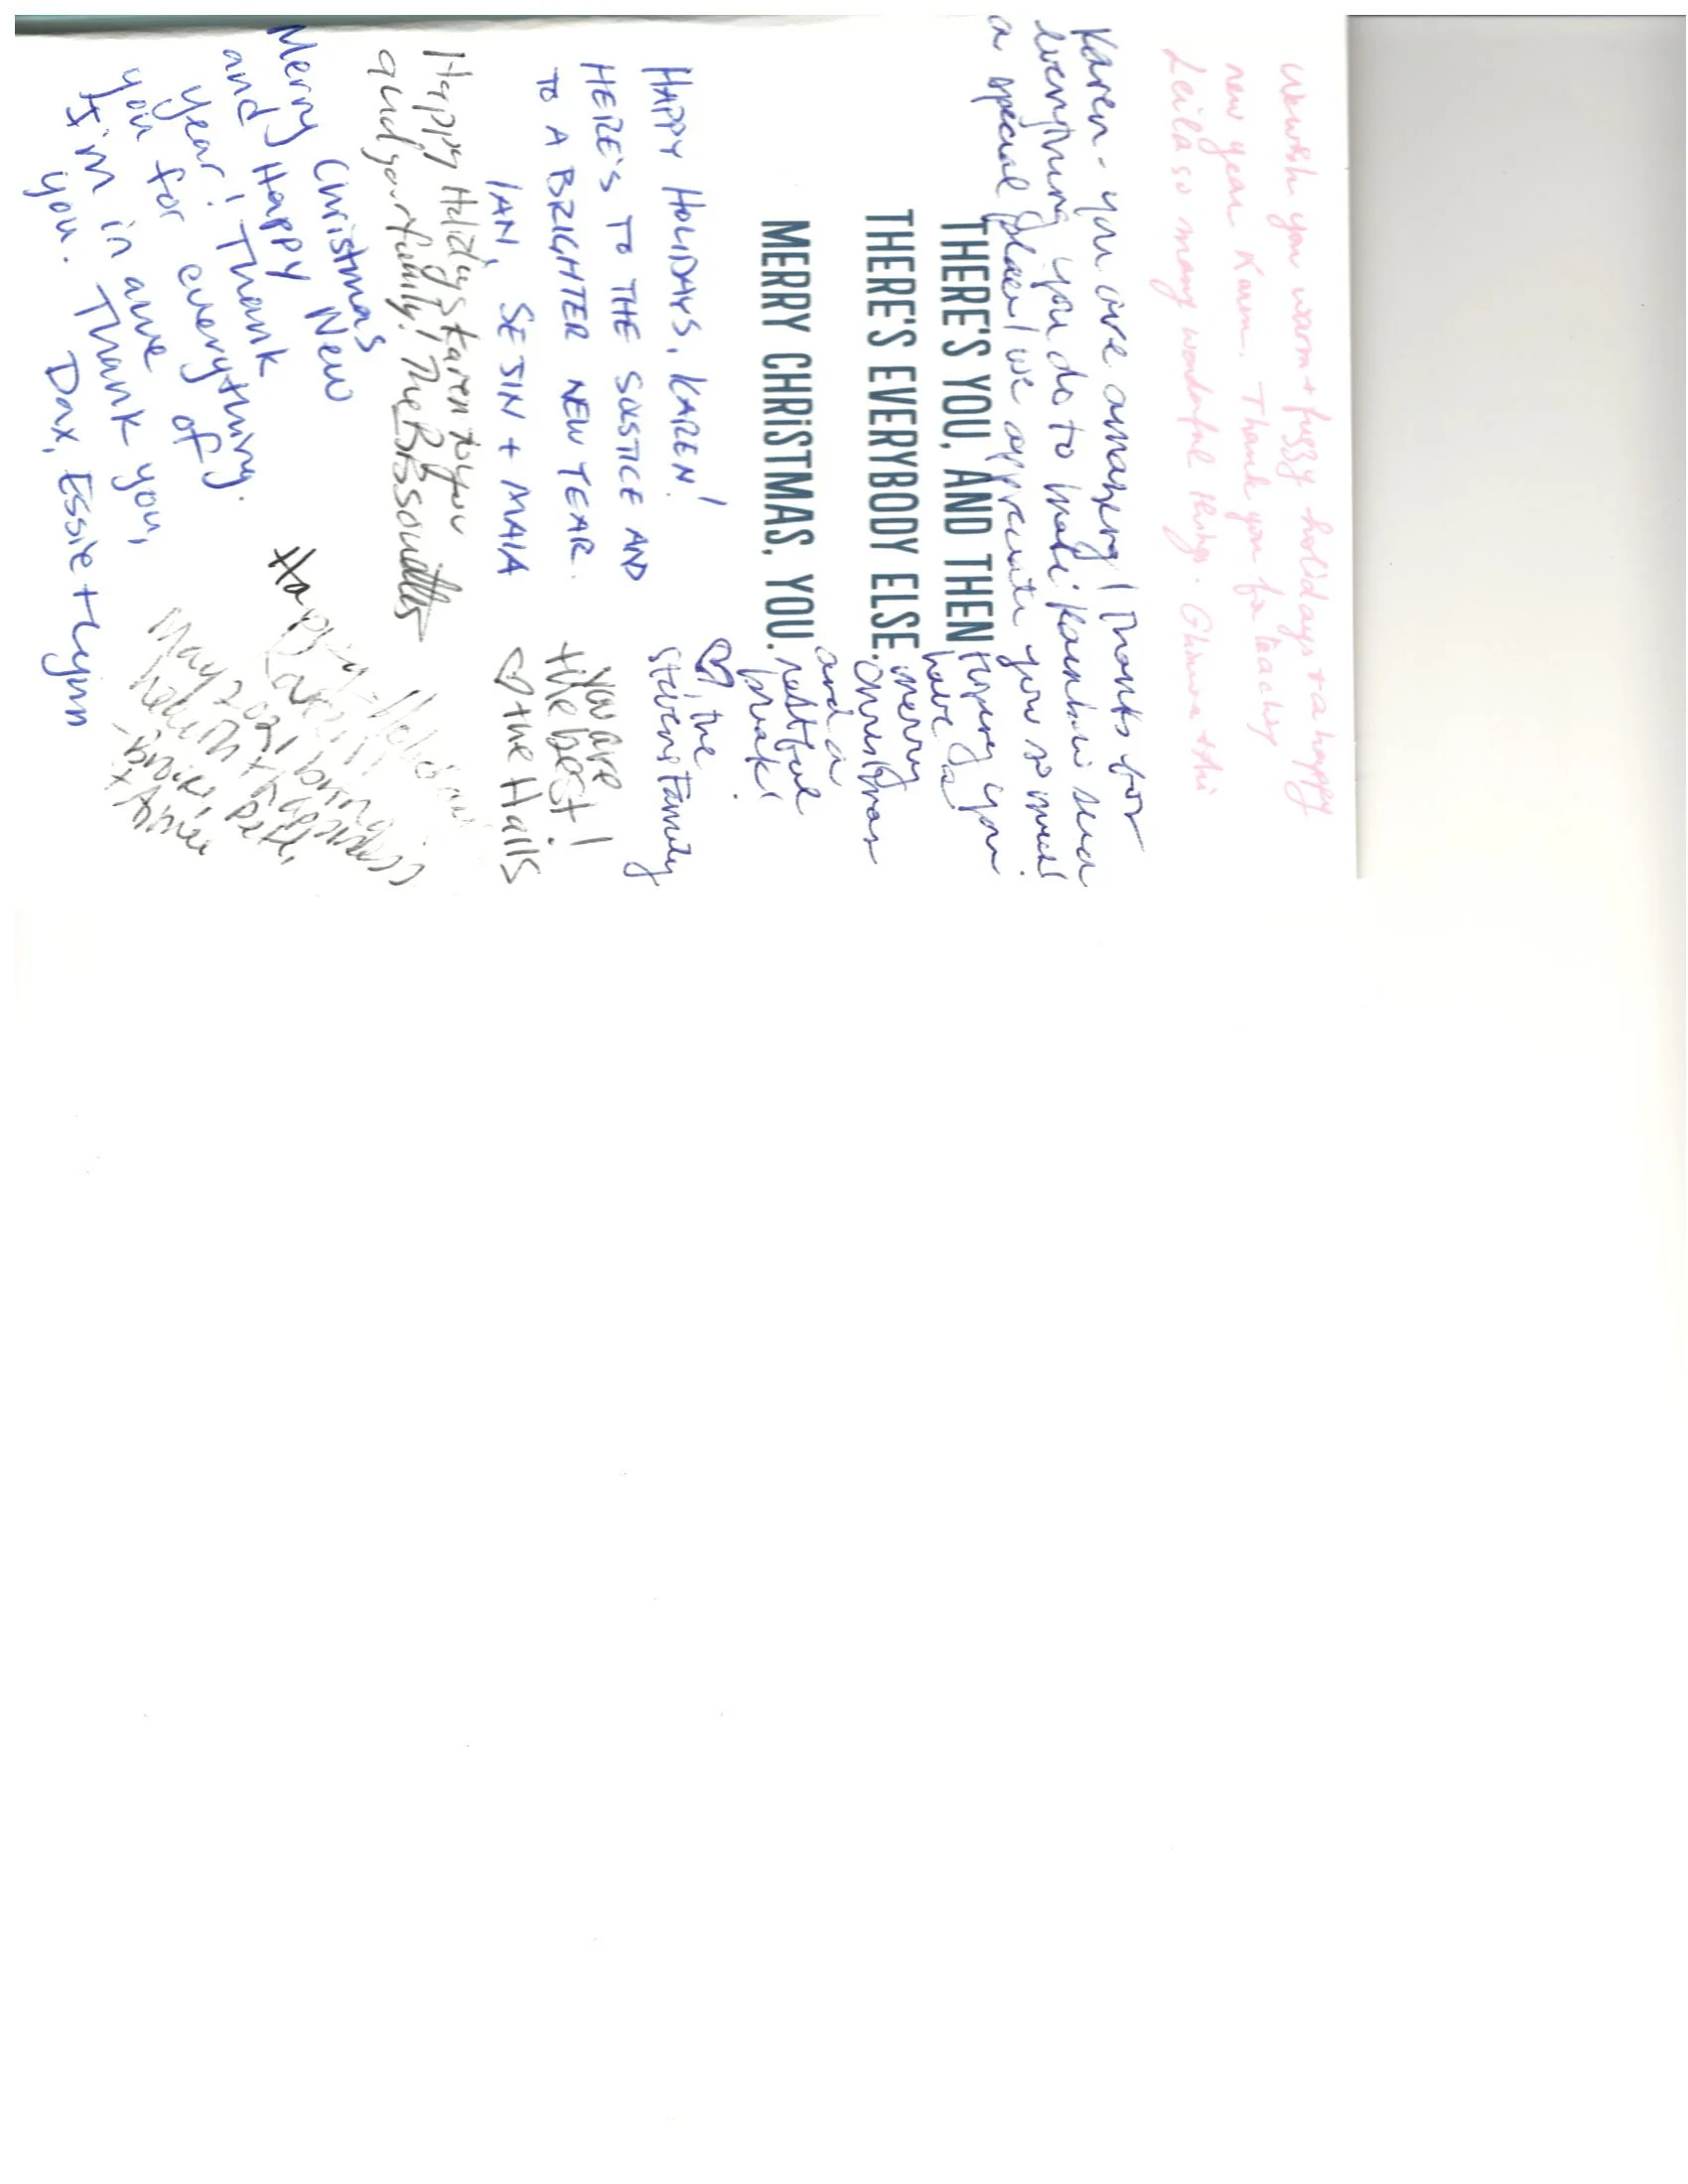 We wish you warm + fuzzy holidays + a happy
new year Karen. Thank you for teaching
Leila so many wonderful things.
Karen - you are amazing! Thanks for
everything you do to make such
a special place! We appreciate you so much!
Hoping you
have a
merry
Christmas
and a
restful
break!
♡ the
Stevens Family
THERE'S YOU, AND THEN
THERE'S EVERYBODY ELSE.
MERRY CHRISTMAS, YOU.
HAPPY HOLIDAYS, KAREN!
HERE'S TO THE SOLSTICE AND
TO A BRIGHTER NEW YEAR.
IAN, SEJIN + MAIA
You are
the best!
♡ the Halls
Happy Holidays Karen to you
and your family! The
Merry Christmas
and Happy New
year! Thank
you for everything.
I'm in awe of
you. Thank you,
Dax, Essie + Lynn
Happy Holidays
Karen!
May 2021 bring
health + happiness